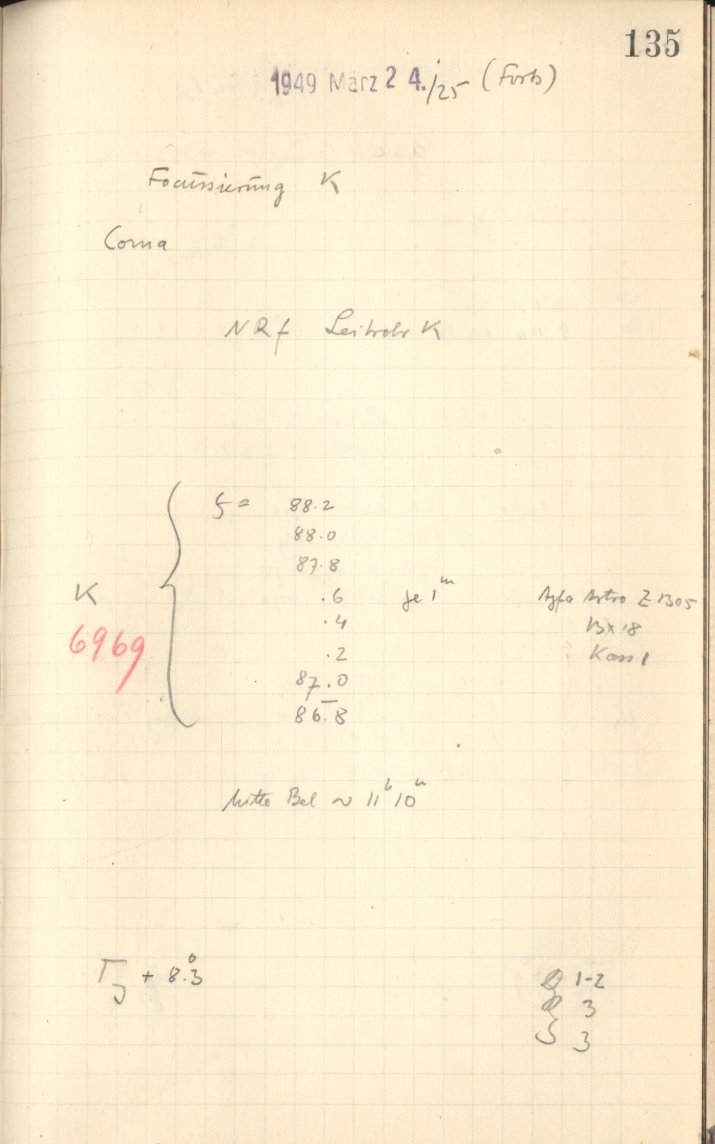 135
1949 März 24./25 (Forts)
Focussierung K
Coma
NRf Leitrohr K
ζ = 88.2
88.0
87.8
K .6 je 1ᵐ Agfa Astro Z 1305
6969 .4 13x18
.2 Kass 1
87.0
86.8
Mitte Bel ~ 11ʰ10ᵐ
TJ + 8.°3
1-2
3
S 3